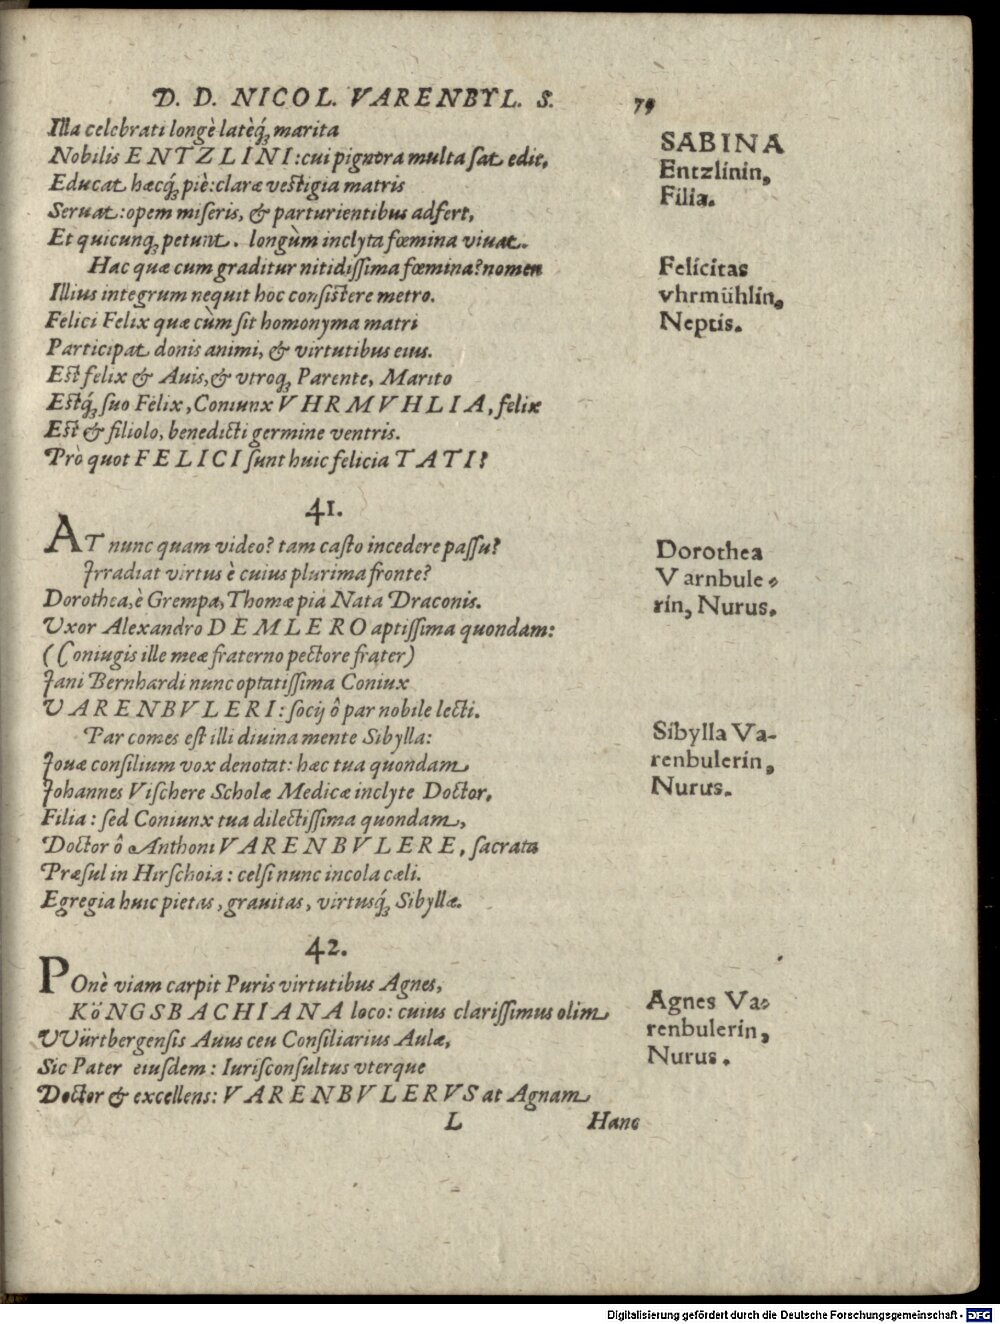 D. D. NICOL. VARENBYL. S. 79
Illa celebrati longè latèq́ꝫ marita
Nobilis ENTZLINI: cui pignora multa sat edit,
Educat hæcq́ꝫ piè: claræ vestigia matris
Seruat: opem miseris, & parturientibus adfert,
Et quicunqꝫ petunt. longùm inclyta fœmina viuat.
SABINA
Entzlinin,
Filia.
Hac quæ cum graditur nitidissima fœmina? nomen
Illius integrum nequit hoc consistere metro.
Felici Felix quæ cùm sit homonyma matri
Participat donis animi, & virtutibus eius.
Est felix & Auis, & vtroqꝫ Parente, Marito
Estq́ꝫ suo Felix, Coniunx VHRMVHLIA, felix
Est & filiolo, benedicti germine ventris.
Prò quot FELICI sunt huic felicia TATI?
Felicitas
vhrmühlin,
Neptis.
41.
AT nunc quam video? tam casto incedere passu?
Irradiat virtus è cuius plurima fronte?
Dorothea, è Grempa, Thomæ pia Nata Draconis.
Vxor Alexandro DEMLERO aptissima quondam:
(Coniugis ille meæ fraterno pectore frater)
Jani Bernhardi nunc optatissima Coniux
VARENBVLERI: socij ô par nobile lecti.
Dorothea
Varnbule-
rin, Nurus.
Par comes est illi diuina mente Sibylla:
Jouæ consilium vox denotat: hæc tua quondam
Johannes Vischere Scholæ Medicæ inclyte Doctor,
Filia: sed Coniunx tua dilectissima quondam,
Doctor ô Anthoni VARENBVLERE, sacrata
Præsul in Hirschoia: celsi nunc incola cæli.
Egregia huic pietas, grauitas, virtusq́ꝫ Sibyllæ.
Sibylla Va-
renbulerin,
Nurus.
42.
POnè viam carpit Puris virtutibus Agnes,
KöNGSBACHIANA loco: cuius clarissimus olim
VVürtbergensis Auus ceu Consiliarius Aulæ,
Sic Pater eiusdem: Iurisconsultus vterque
Doctor & excellens: VARENBVLERVS at Agnam
Agnes Va-
renbulerin,
Nurus.
L Hanc
Digitalisierung gefördert durch die Deutsche Forschungsgemeinschaft - DFG